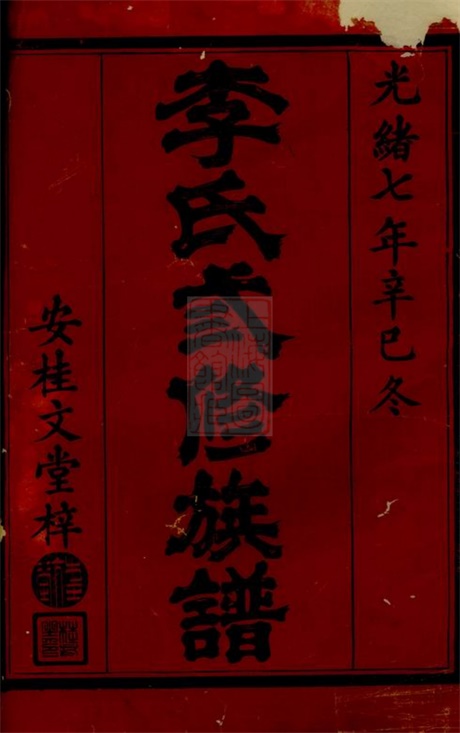 光緒七年辛巳冬
李氏弍修族譜
安桂文堂梓